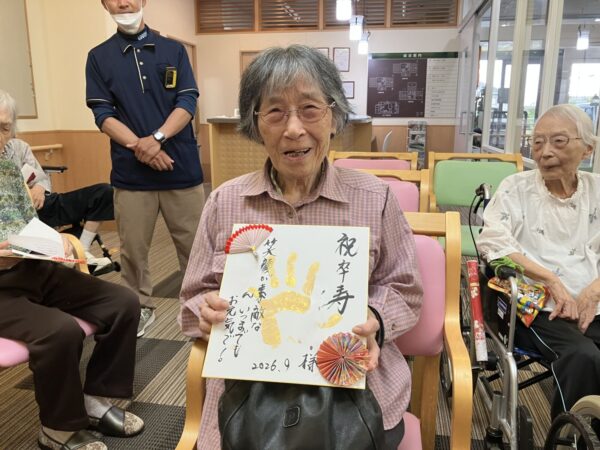 祝卒寿
様
笑顔が素敵な
ん いつまでも
お元気で!
2026.9